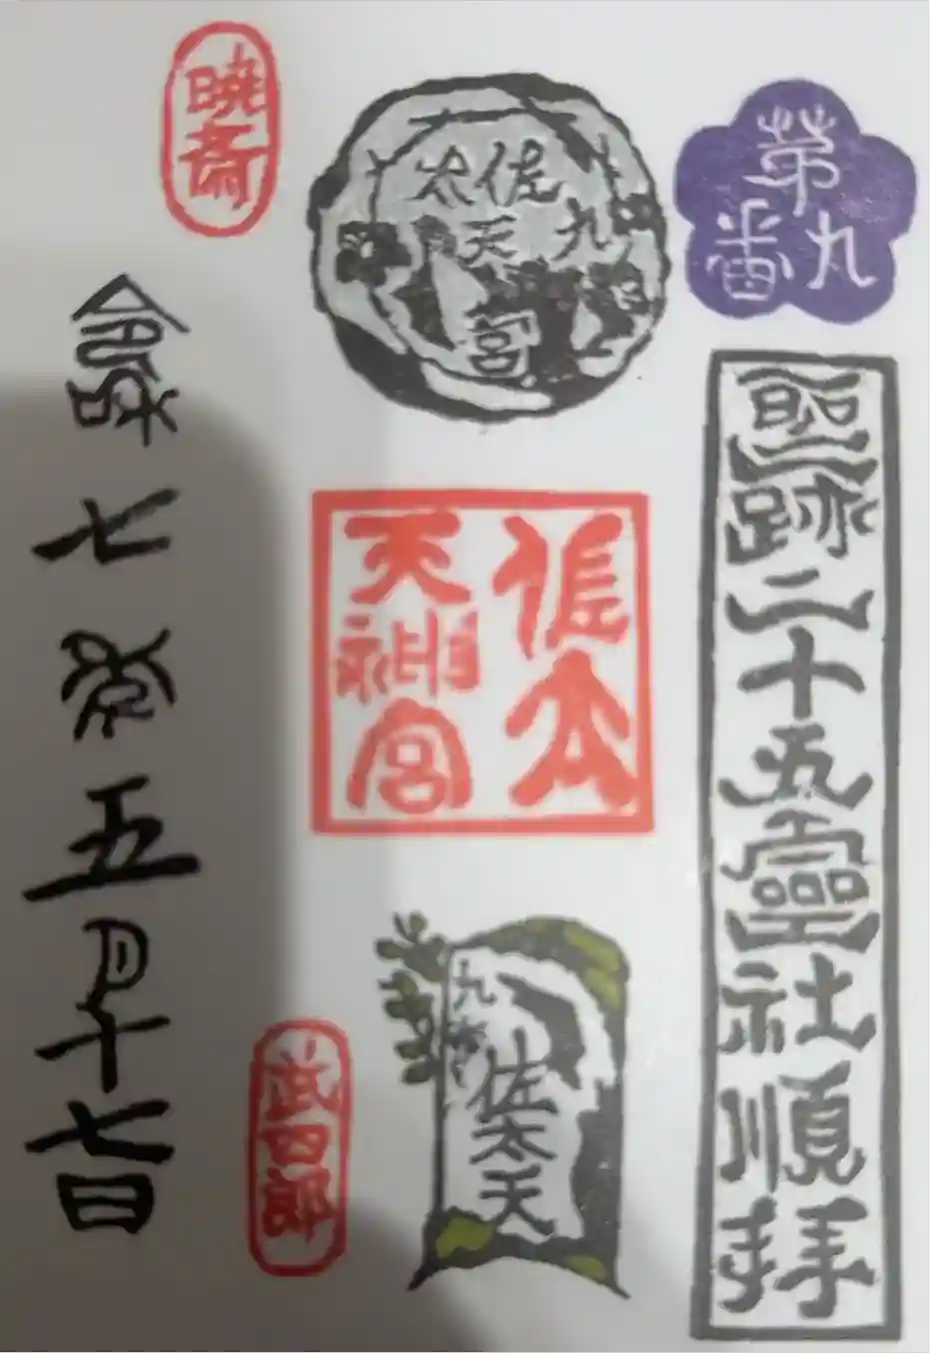 第九番
聖跡二十五靈社順拝
佐太
天
宮
佐太
天神宮
九番
佐太天
暁斎
令和七年五月十七日
武四郎